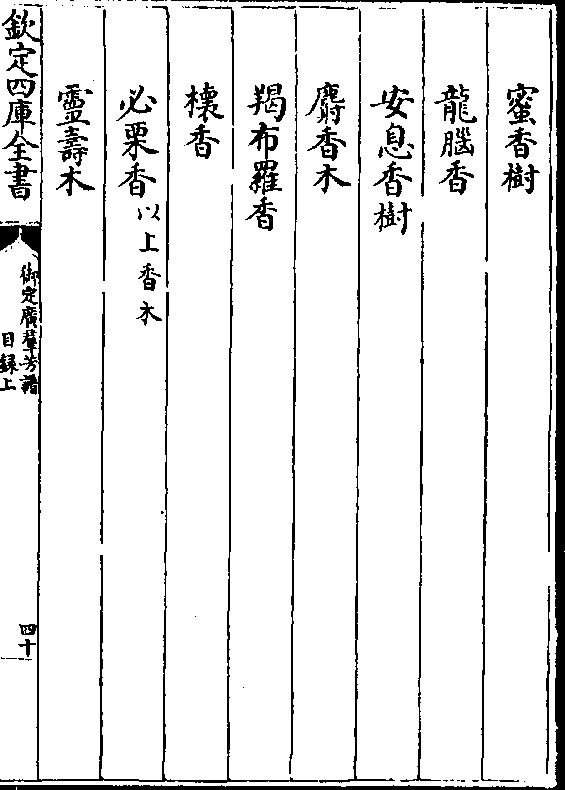 蜜香樹
龍腦香
安息香樹
麝香木
羯布羅香
櫰香
必栗香以上香木
靈壽木
欽定四庫全書
御定廣羣芳譜
目録上
四十